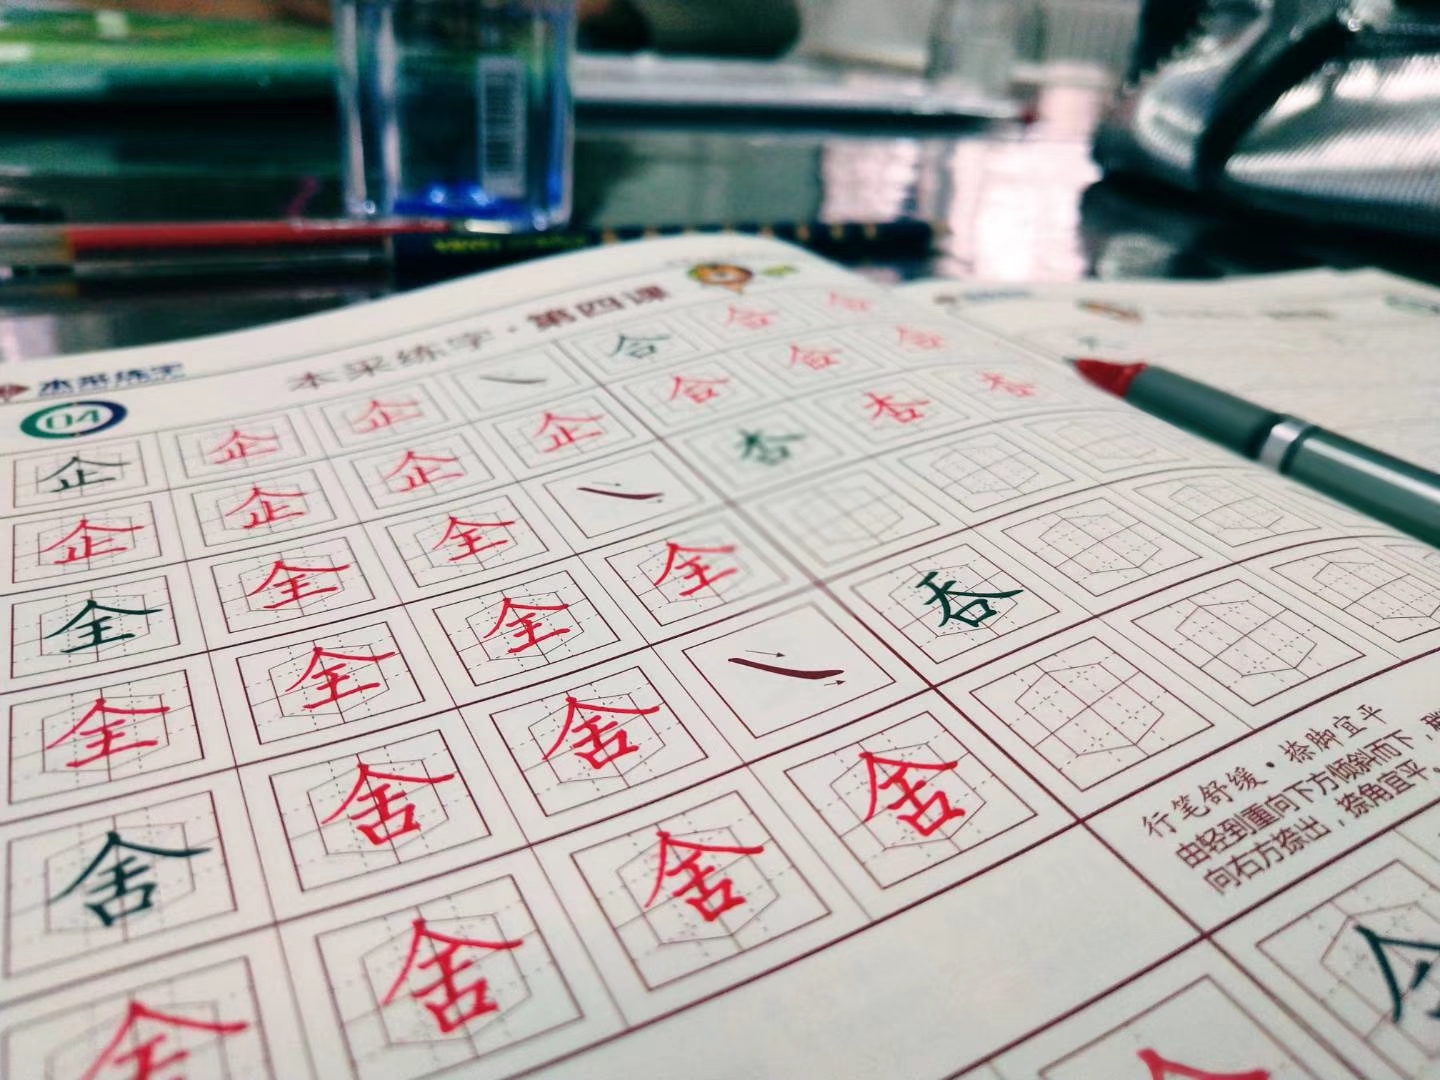 本采练字
04
本采练字·第四课
企 企 企 合 合 合
企 企 企 企 合 合 合
全 全 全 杏 杏 杏
全 全 全 全
舍 舍 舍 吞
舍 舍 舍
行笔舒缓·捺脚宜平
由轻到重向下方倾斜而下，
向右方捺出，捺角宜平。